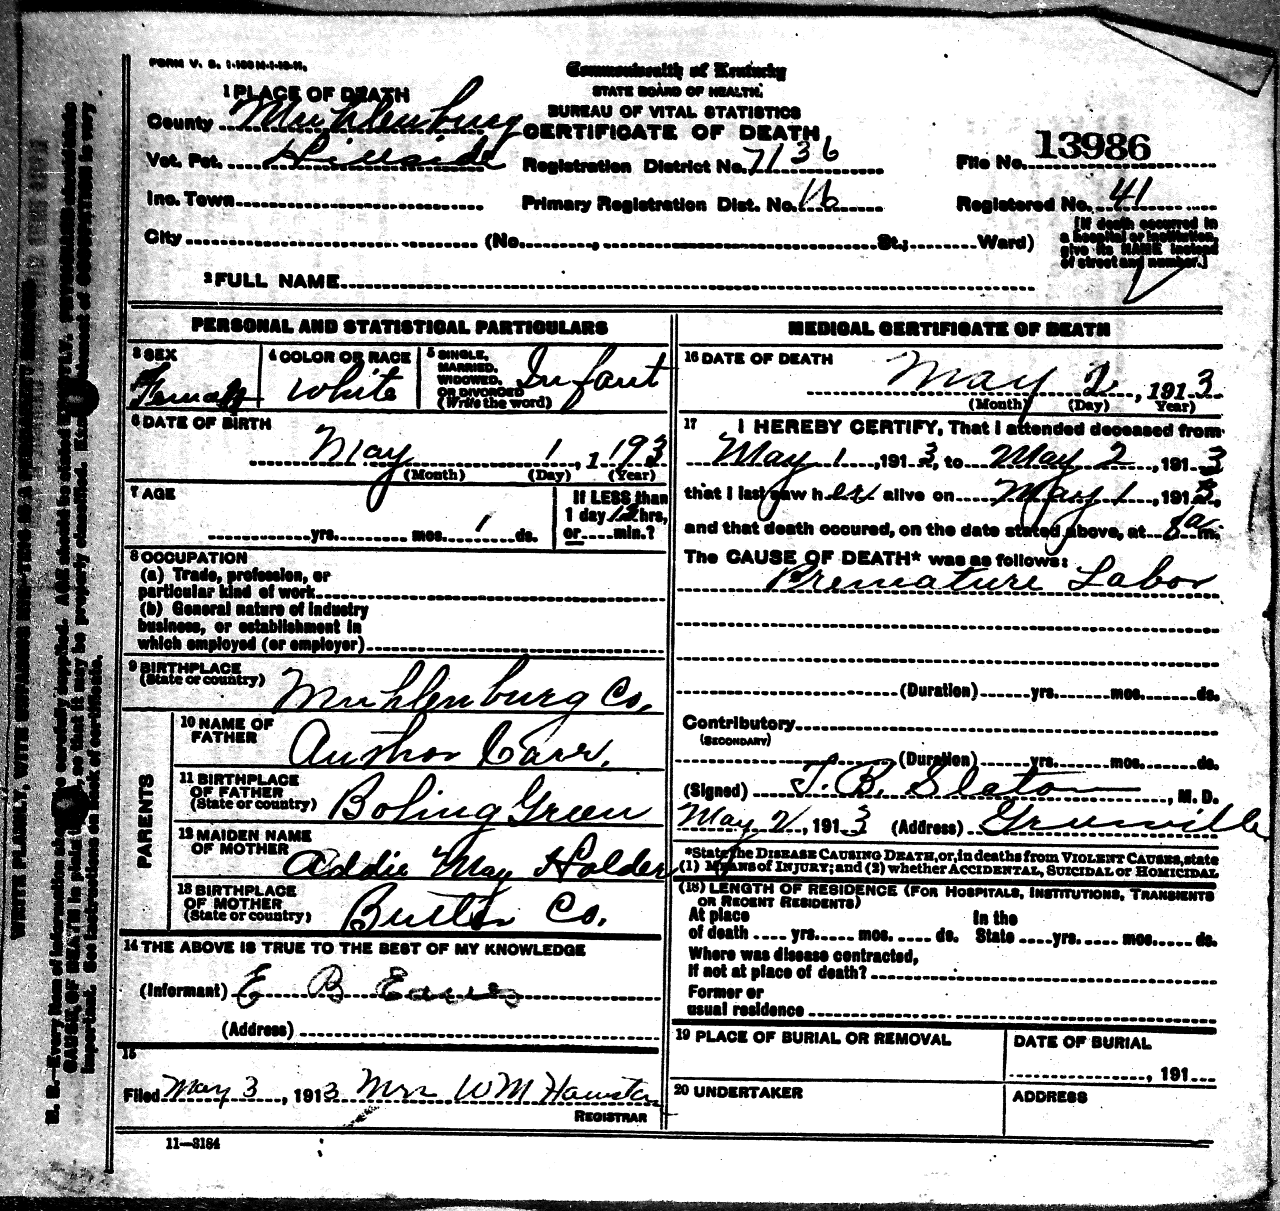 FORM V. S. 1-
Commonwealth of Kentucky
STATE BOARD OF HEALTH.
BUREAU OF VITAL STATISTICS
CERTIFICATE OF DEATH
1 PLACE OF DEATH
County Muhlenburg
Vot. Pct. Hillside
Registration District No. 7136
File No. 13986
Inc. Town
Primary Registration Dist. No. 16
Registered No. 41
City (No. , St.; Ward)
[If death occurred in
a hospital or institution,
give its NAME instead
of street and number.]
2 FULL NAME
PERSONAL AND STATISTICAL PARTICULARS
3 SEX
Female
4 COLOR OR RACE
White
5 SINGLE,
MARRIED,
WIDOWED,
OR DIVORCED
(Write the word)
Infant
6 DATE OF BIRTH
May 1, 1 193
(Month) (Day) (Year)
7 AGE
yrs. mos. 1 ds.
If LESS than
1 day 12 hrs,
or min.?
8 OCCUPATION
(a) Trade, profession, or
particular kind of work
(b) General nature of industry
business, or establishment in
which employed (or employer)
9 BIRTHPLACE
(State or country)
Muhlenburg Co.
PARENTS
10 NAME OF
FATHER
Author Carr.
11 BIRTHPLACE
OF FATHER
(State or country)
Boling Green
12 MAIDEN NAME
OF MOTHER
Addie May Holder
13 BIRTHPLACE
OF MOTHER
(State or country)
Butler Co.
14 THE ABOVE IS TRUE TO THE BEST OF MY KNOWLEDGE
(Informant) E B Eaves
(Address)
15
Filed May 3, 1913 Mrs W M
REGISTRAR
11—3184
MEDICAL CERTIFICATE OF DEATH
16 DATE OF DEATH
May 2, 1913
(Month) (Day) Year)
17 I HEREBY CERTIFY, That I attended deceased from
May 1, 1913, to May 2, 1913
that I last saw her alive on May 1, 1913,
and that death occured, on the date stated above, at 8 a m.
The CAUSE OF DEATH* was as follows:
Premature Labor
(Duration) yrs. mos. ds.
Contributory
(SECONDARY)
(Duration) yrs. mos. ds.
(Signed) T. B. Slaton, M. D.
May 2, 1913 (Address) Greenville
*State the DISEASE CAUSING DEATH, or, in deaths from VIOLENT CAUSES, state
(1) MEANS of INJURY; and (2) whether ACCIDENTAL, SUICIDAL or HOMICIDAL
(18) LENGTH OF RESIDENCE (FOR HOSPITALS, INSTITUTIONS, TRANSIENTS
OR RECENT RESIDENTS)
At place
of death yrs. mos. ds.
In the
State yrs. mos. ds.
Where was disease contracted,
If not at place of death?
Former or
usual residence
19 PLACE OF BURIAL OR REMOVAL
DATE OF BURIAL
, 191
20 UNDERTAKER
ADDRESS